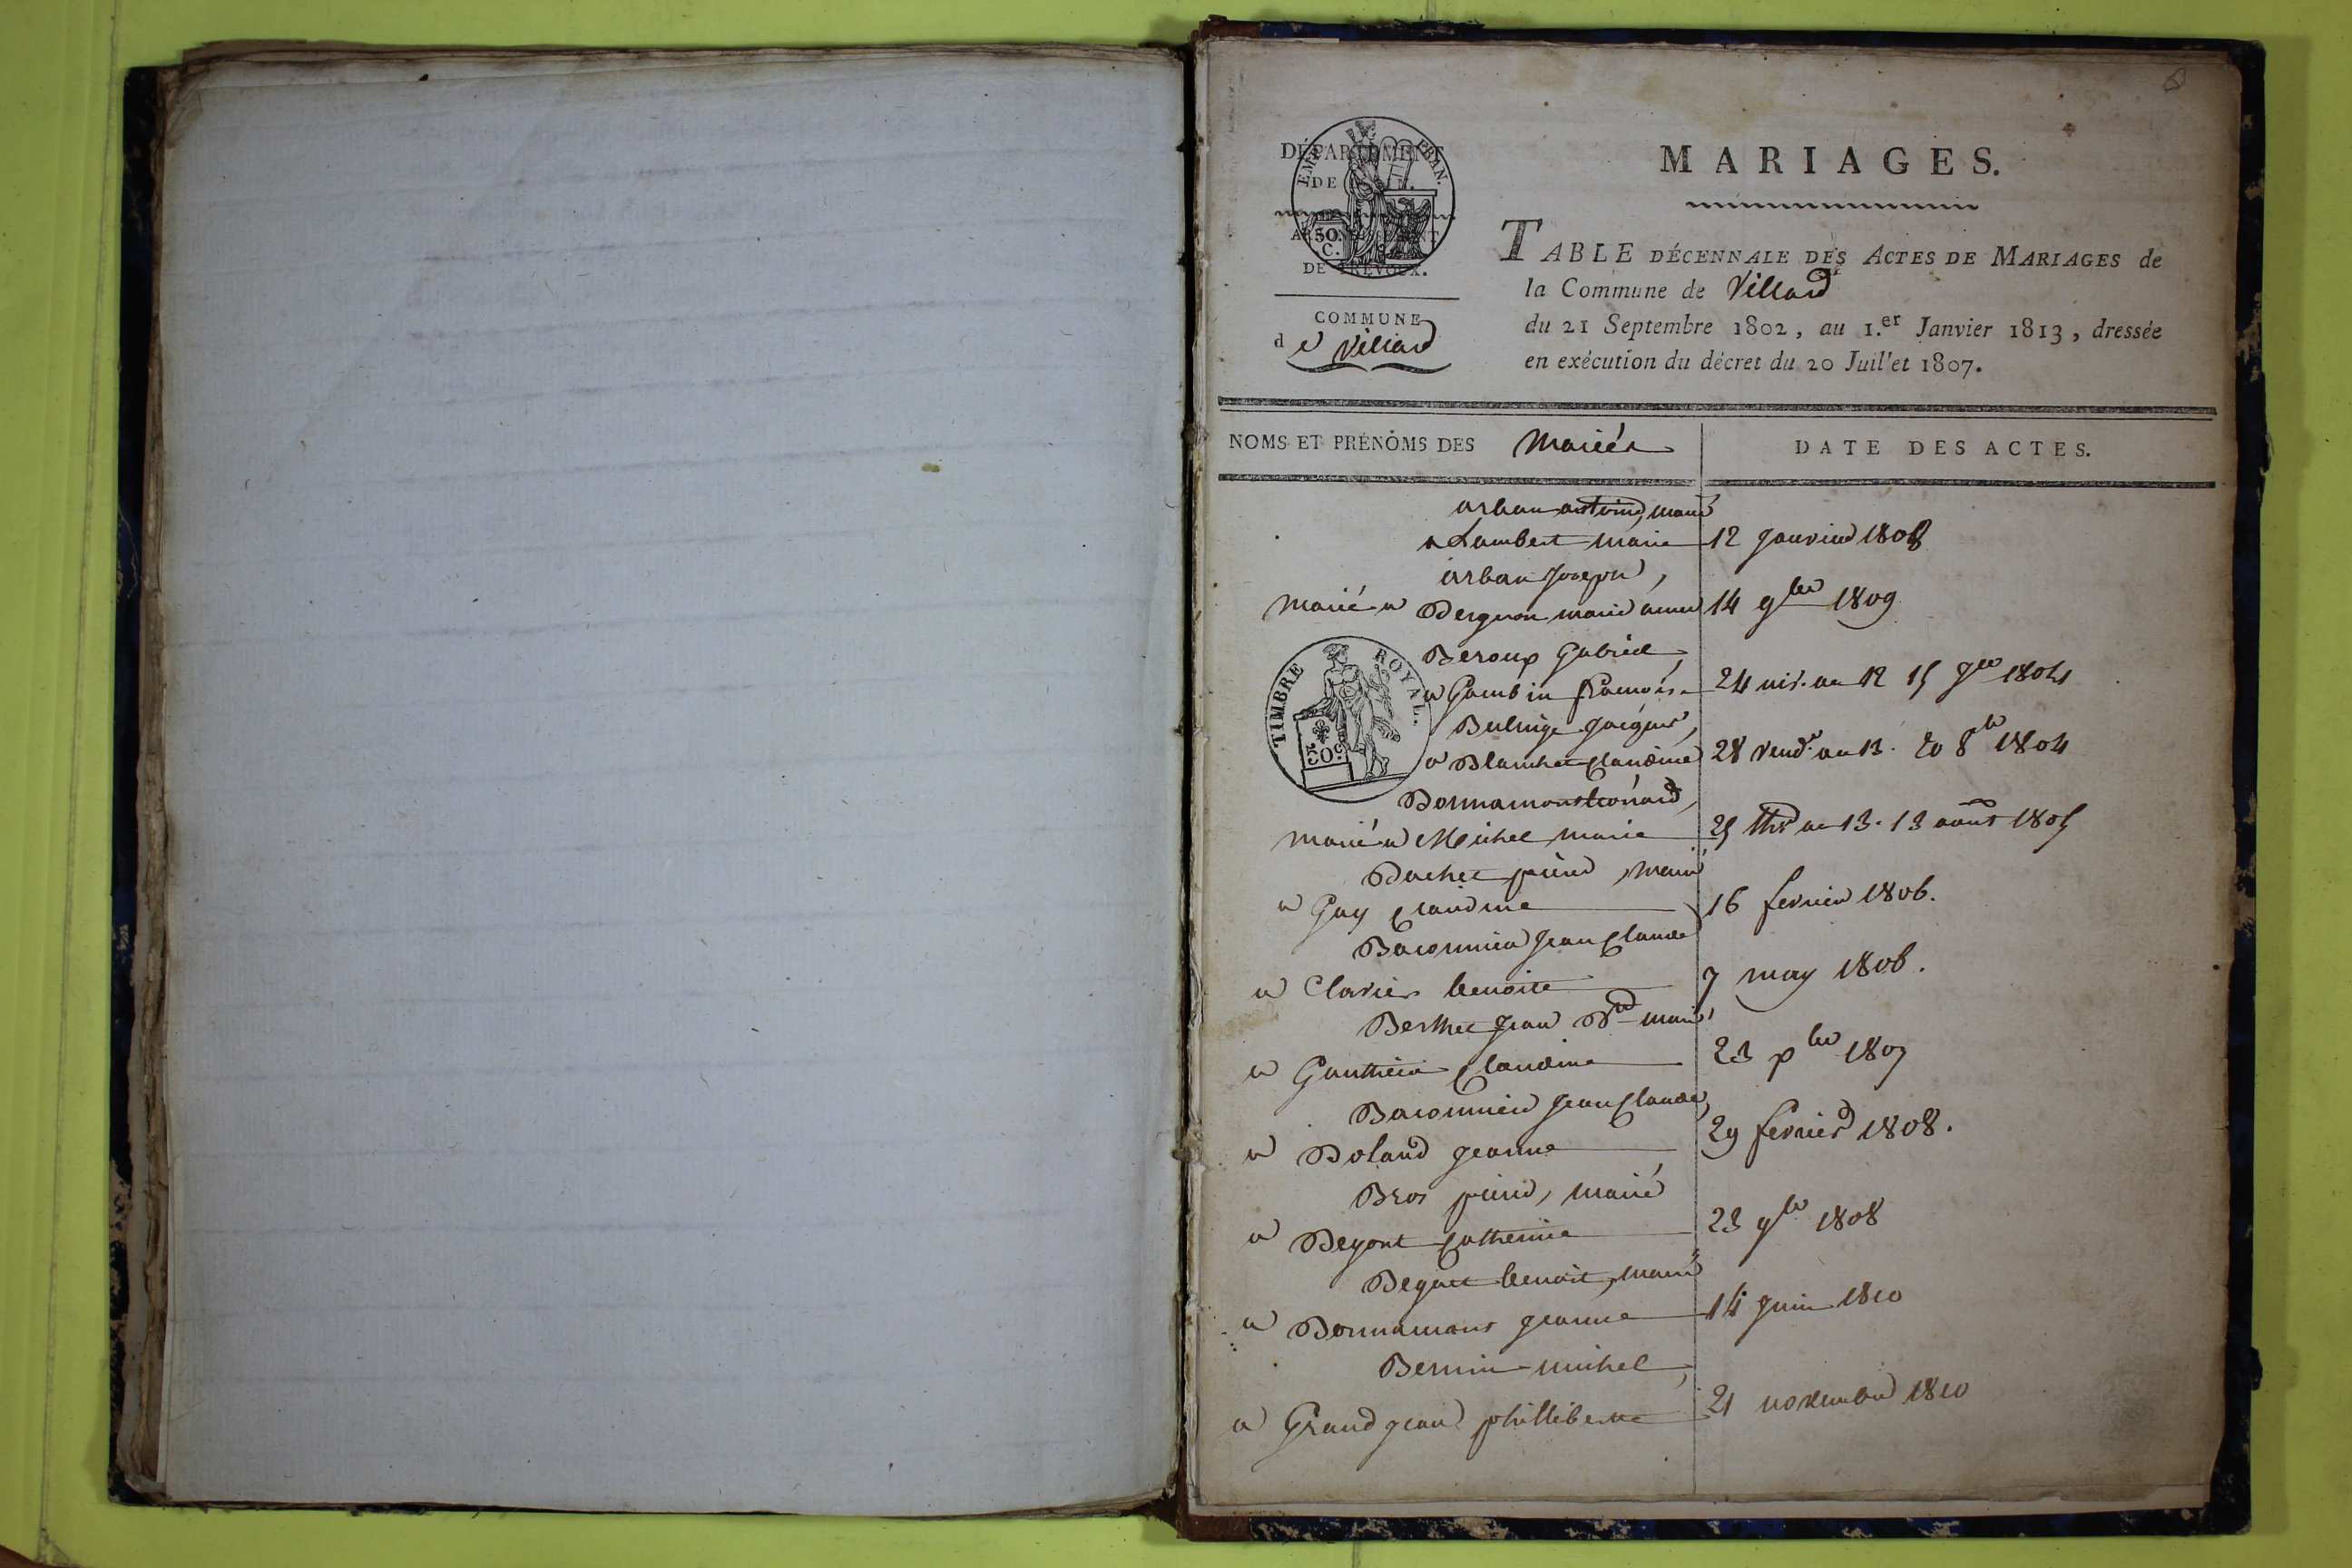 DÉPARTEMENT
EMP. FRAN.
DE L'AIN.
ARRONDISSEMENT
50.
C.
DE TRÉVOUX.
COMMUNE
de Villard
MARIAGES.
TABLE DÉCENNALE DES ACTES DE MARIAGES de
la Commune de Villard
du 21 Septembre 1802, au 1.er Janvier 1813, dressée
en exécution du décret du 20 Juillet 1807.
NOMS ET PRÉNOMS DES Mariés
DATE DES ACTES.
arban antoine, marié
a Lambert marie 12 Janvier 1808
arban Joseph,
marié a Bergeron marie anne 14 9bre 1809
TIMBRE ROYAL.
50 c.
Beroux Gabriel,
a Gambin françoise 24 niv. an 12 15 Jer 1804
Jacques,
a Blanchet Claudine 28 vend.re an 13. 20 8bre 1804
Bonnamour Léonard,
marié a Michel marie 25 thr. an 13. 13 aout 1805
Bachet pierre, marié
a Guy Claudine 16 fevrier 1806.
Baconnier Jean Claude
a Clavier benoite 7 may 1806.
Berthet Jean Bte marié
a Gauthier Claudine 23 bre 1807
Baconnier Jean Claude,
a Boland Jeanne 29 fevrier 1808.
Bros pierre, marié
a Catherine 23 9bre 1808
benoit, marié
a Bonnamour Jeanne 14 Juin 1810
michel,
a Grand jean philliberte 21 novembre 1810